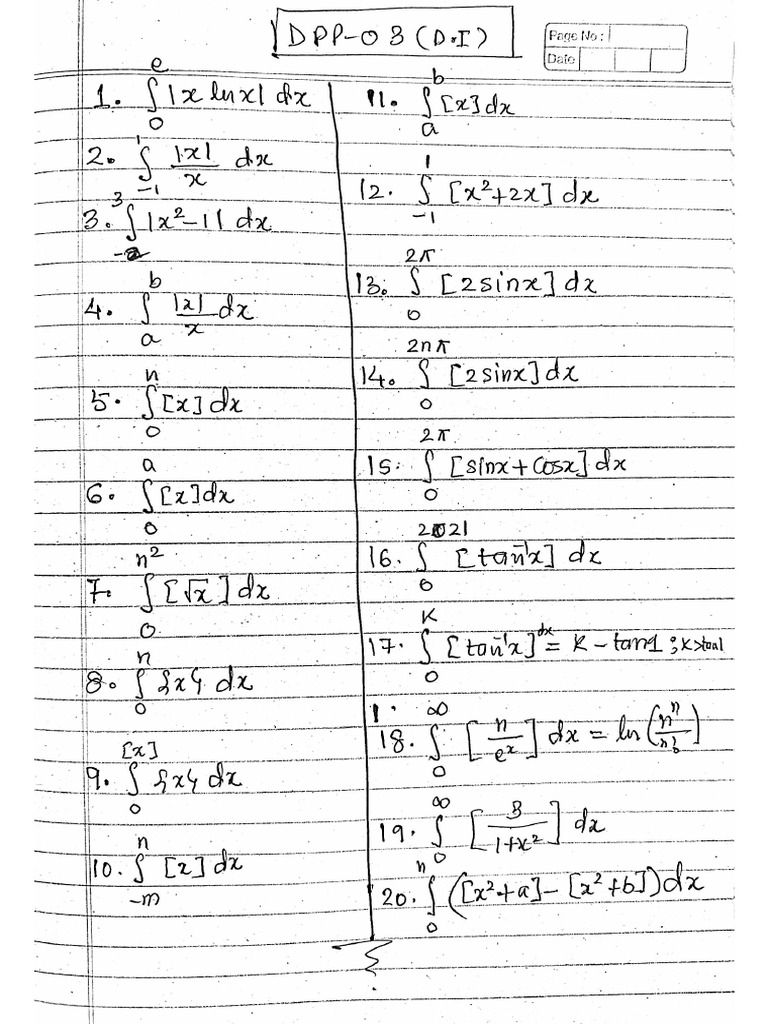 DPP-03 (D.I)
Page No :
Date
1. ∫₀ᵉ |x lnx| dx
2. ∫₋₁¹ |x|/x dx
3. ∫₋₂³ |x²-1| dx
4. ∫ₐᵇ |x|/x dx
5. ∫₀ⁿ [x] dx
6. ∫₀ᵃ [x] dx
7. ∫₀^(n²) [√x] dx
8. ∫₀ⁿ {x} dx
9. ∫₀^([x]) {x} dx
10. ∫₋ₘⁿ [x] dx
11. ∫ₐᵇ [x] dx
12. ∫₋₁¹ [x²+2x] dx
13. ∫₀^(2π) [2sinx] dx
14. ∫₀^(2nπ) [2sinx] dx
15. ∫₀^(2π) [sinx+cosx] dx
16. ∫₀^(2021) [tan⁻¹x] dx
17. ∫₀ᴷ [tan⁻¹x] dx = K - tan1 ; K>tan1
18. ∫₀^∞ [n/eˣ] dx = ln(nⁿ/n!)
19. ∫₀^∞ [3/(1+x²)] dx
20. ∫₀ⁿ ([x²+a] - [x²+b]) dx